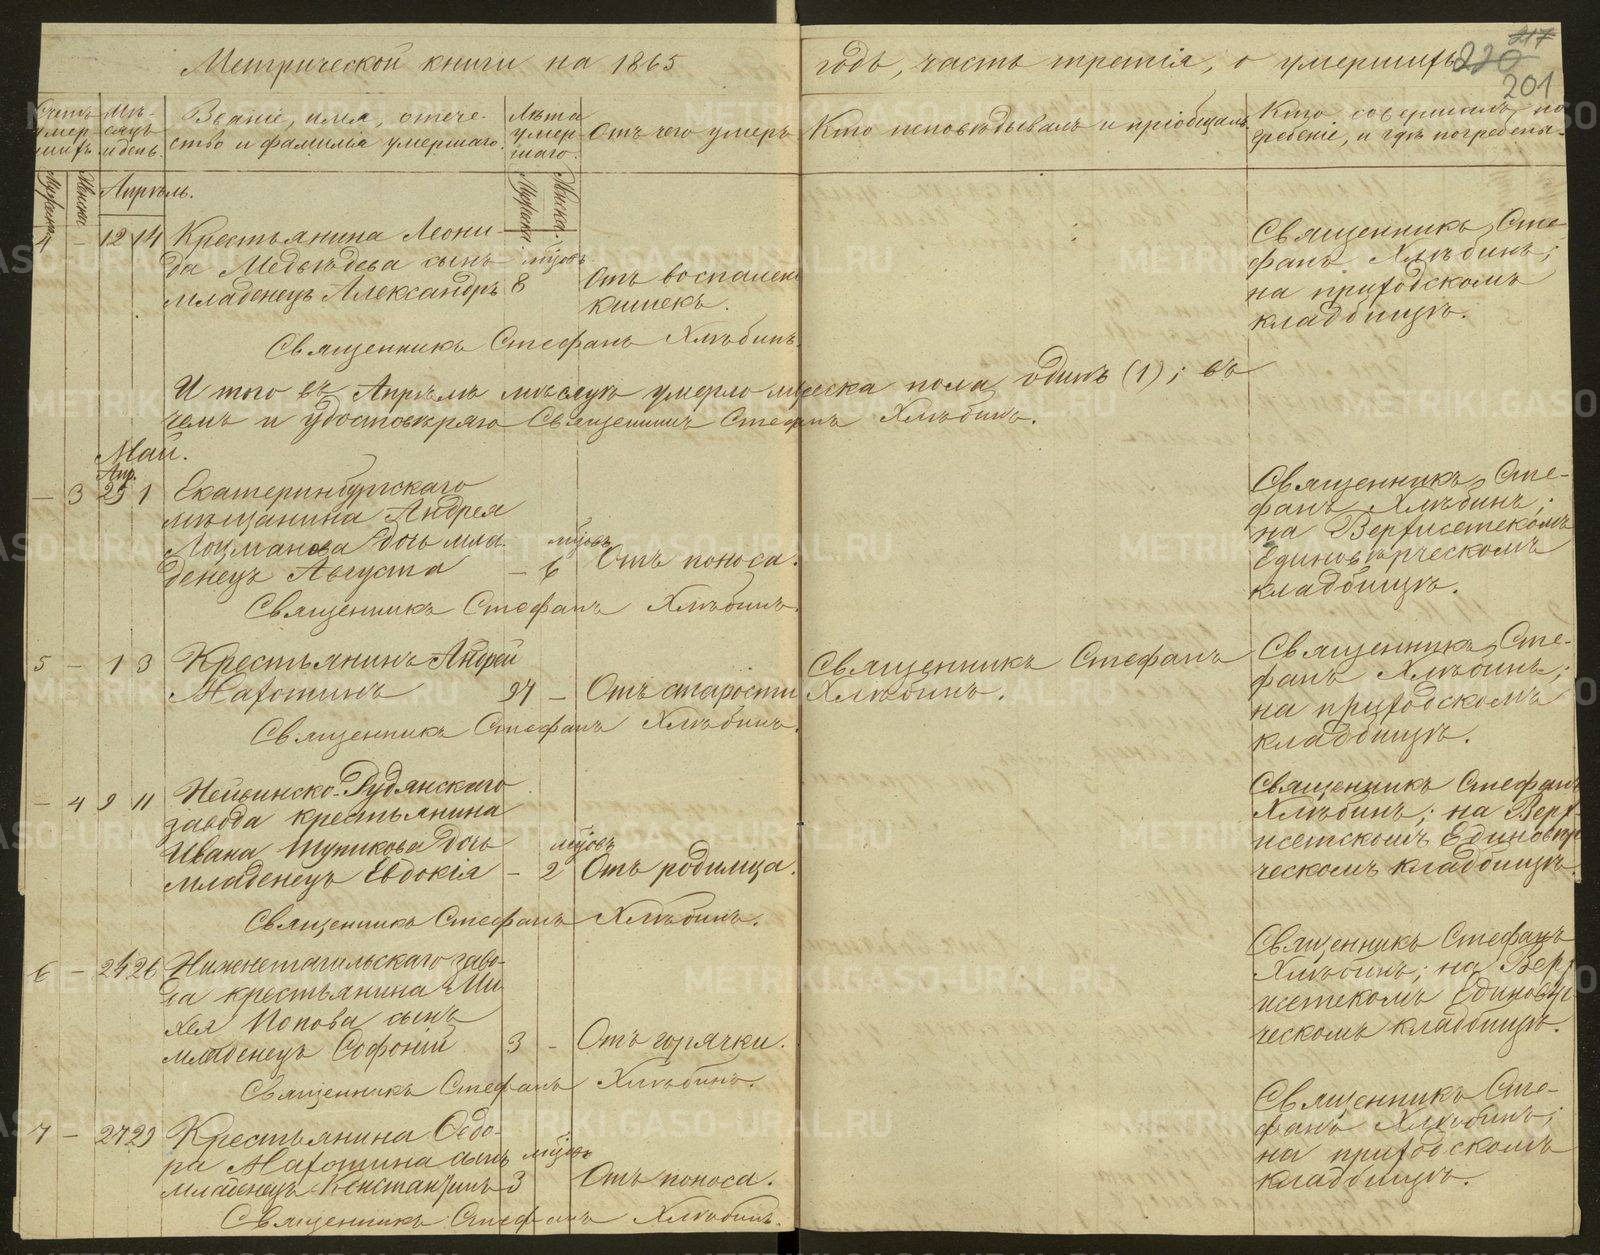 Метрической книги на 1865 годъ, часть третія, о умершихъ
217
220
201
Счетъ умершихъ.
Мѣсяцъ и день.
Званіе, имя, отечество и фамилія умершаго.
Лѣта умершаго.
Отъ чего умеръ
Кто исповѣдывалъ и пріобщалъ
Кто совершалъ погребеніе, и гдѣ погребены.
Мужска
Женска
Апрѣль.
Мужска.
Женска.
4 – 12 14 Крестьянина Леони-
да Медвѣдева сынъ мцовъ
младенецъ Александръ 8 Отъ воспален
кишекъ.
Священникъ Сте-
фанъ Хлѣбинъ;
на приходскомъ
кладбищѣ.
Священникъ Стефанъ Хлѣбинъ.
Итого въ Апрѣлѣ мѣсяцѣ умерло мужеска пола одинъ (1); въ
чемъ и удостовѣряю Священникъ Стефанъ Хлѣбинъ.
Май.
Апр.
– 3 29 1 Екатеринбургскаго
мѣщанина Андрея
Лоцманова дочь мла
денецъ Августа – 6 мцовъ Отъ поноса.
Священникъ Сте-
фанъ Хлѣбинъ;
на Верхисетскомъ
Единовѣрческомъ
кладбищѣ.
Священникъ Стефанъ Хлѣбинъ.
5 – 1 3 Крестьянинъ Андрей
Махотинъ 97 – Отъ старости
Священникъ Стефанъ
Хлѣбинъ.
Священникъ Сте-
фанъ Хлѣбинъ;
на приходскомъ
кладбищѣ.
Священникъ Стефанъ Хлѣбинъ.
– 4 9 11 Нейвинско-Рудянскаго
завода крестьянина
Ивана Шупикова дочь мцовъ
младенецъ Евдокія – 2 Отъ родимца.
Священникъ Стефанъ
Хлѣбинъ; на Верх-
исетскомъ Единовѣр
ческомъ кладбищѣ.
Священникъ Стефанъ Хлѣбинъ.
6 – 24 26 Нижнетагильскаго заво-
да крестьянина Ми
хея Попова сынъ
младенецъ Софоній 3 – Отъ горячки.
Священникъ Стефанъ
Хлѣбинъ; на Верх
исетскомъ Единовѣр-
ческомъ кладбищѣ.
Священникъ Стефанъ Хлѣбинъ.
7 – 27 29 Крестьянина Ѳедо-
ра Махотина сынъ мцовъ
младенецъ Константинъ 3 Отъ поноса.
Священникъ Сте-
фанъ Хлѣбинъ;
на приходскомъ
кладбищѣ.
Священникъ Стефанъ Хлѣбинъ.
METRIKI.GASO-URAL.RU